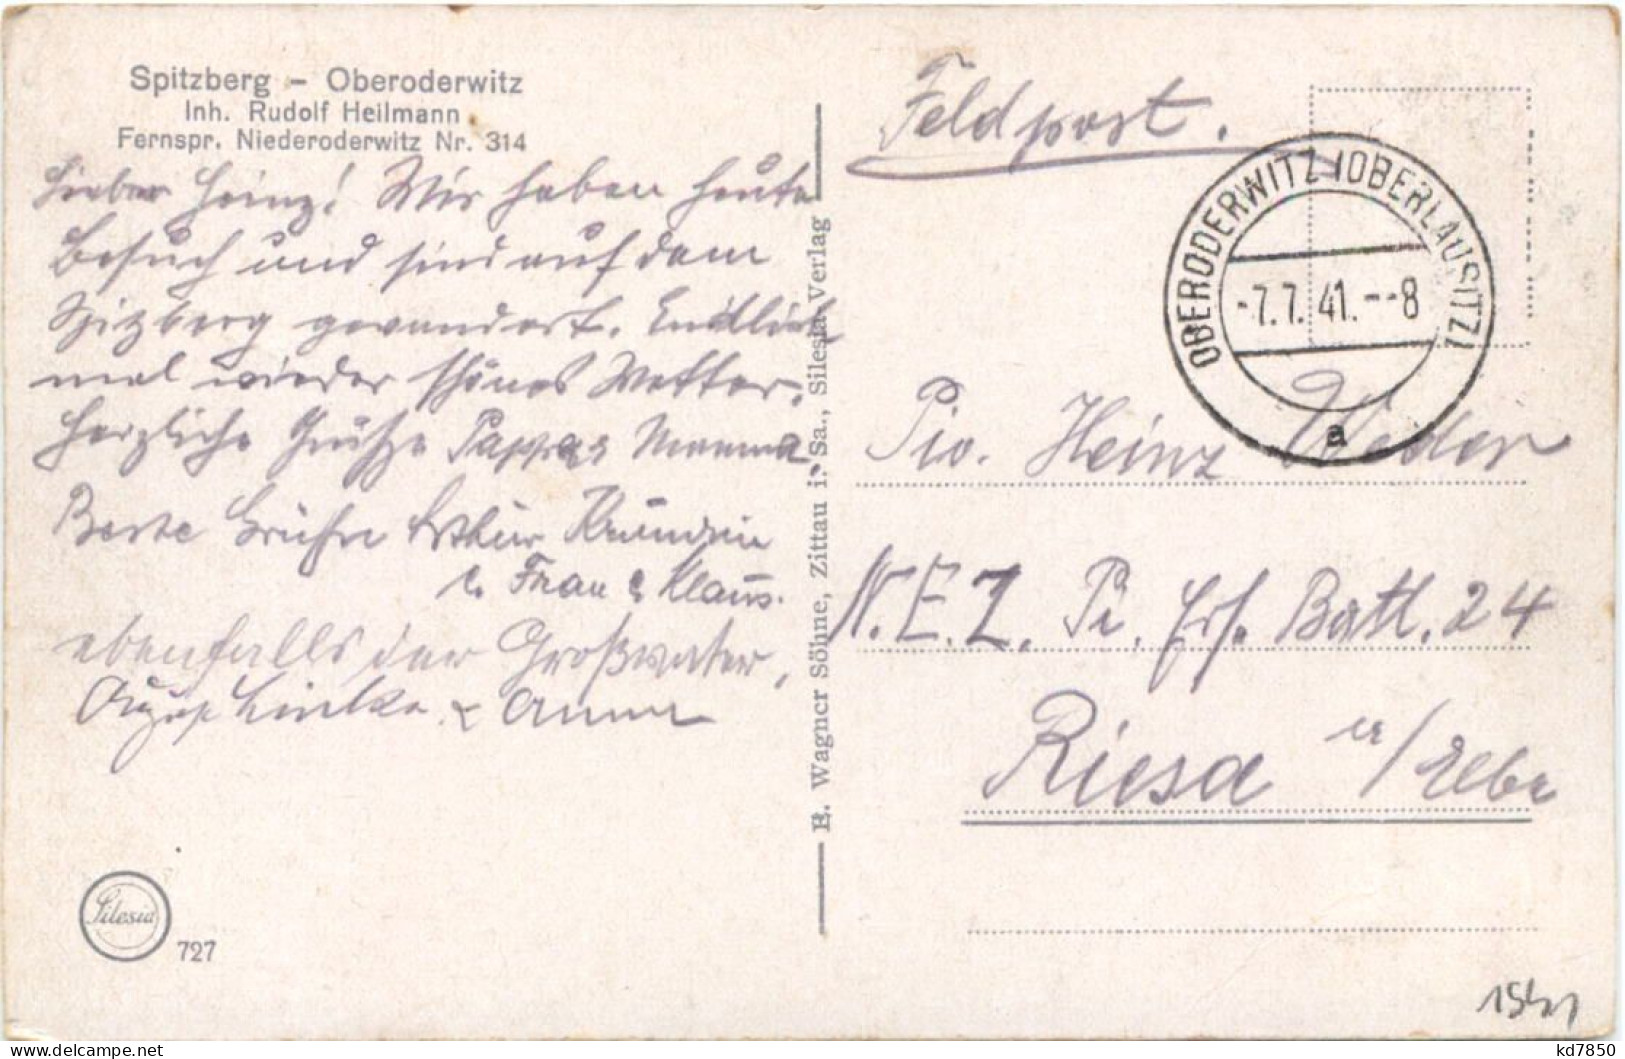 Spitzberg – Oberoderwitz
Inh. Rudolf Heilmann
Fernspr. Niederoderwitz Nr. 314
Lieber Heinz! Wir haben heute
Besuch und sind auf dem
Spizberg gewandert. Endlich
mal wieder schönes Wetter.
Herzliche Grüße Mamma.
Beste Grüße Arthur
u. Frau & Klaus.
ebenfalls der Großvater,
Linke & Anna
Silesia
727
E. Wagner Söhne, Zittau i. Sa., Silesia-Verlag
Feldpost.
OBERODERWITZ (OBERLAUSITZ)
-7.7.41.--8
a
Pio. Heinz
N.E.Z. Pi. Ers. Batl. 24
Riesa a/Elbe
kd7850